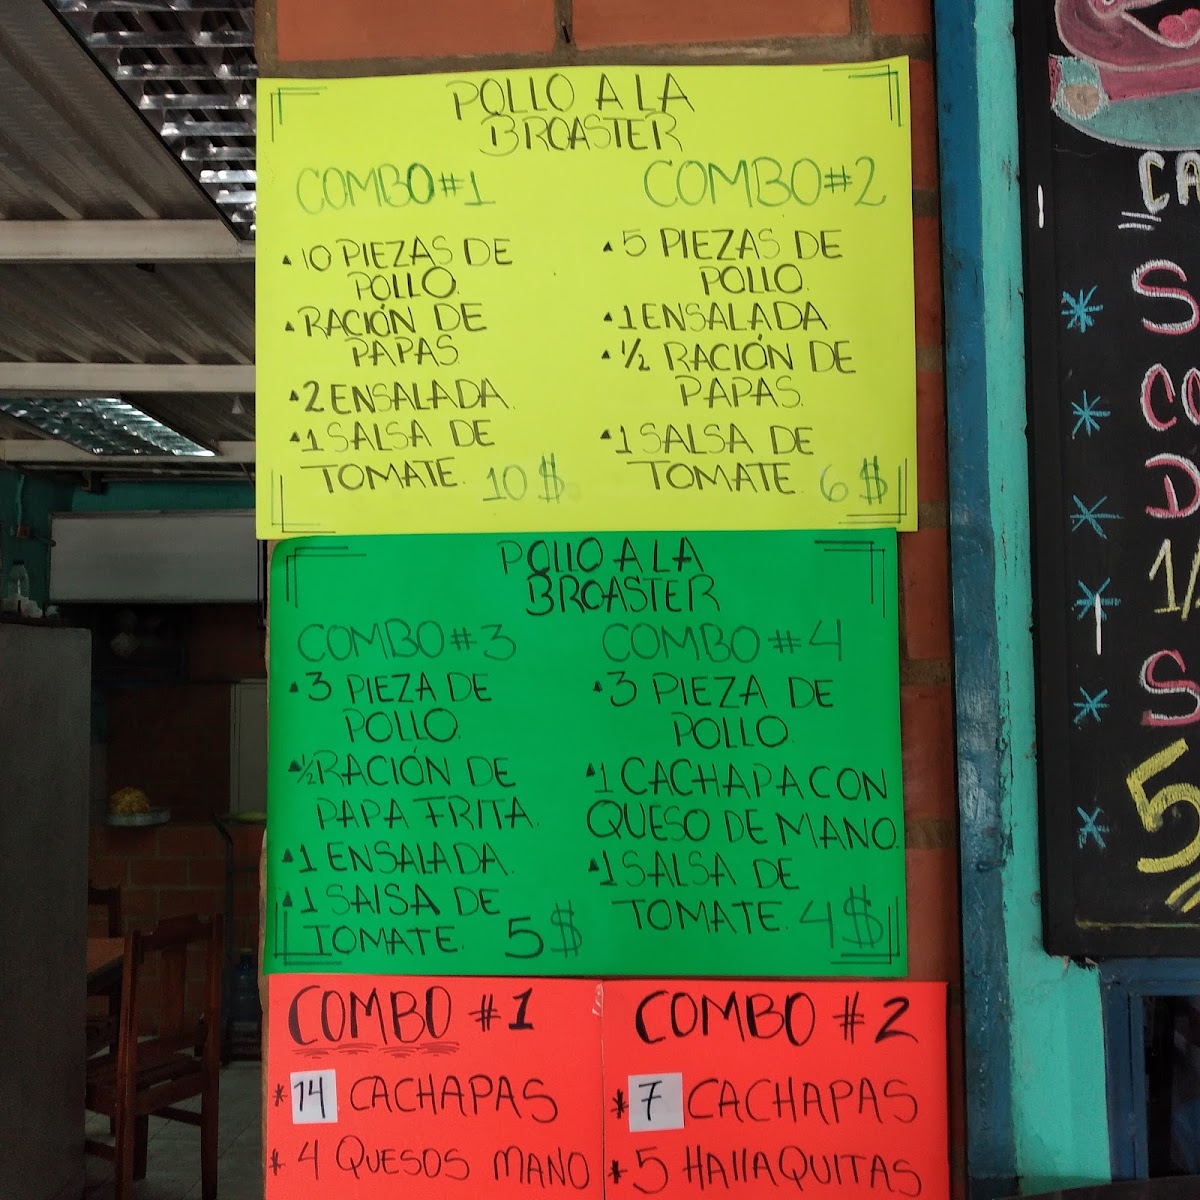 POLLO A LA
BROASTER
COMBO #1
10 PIEZAS DE
POLLO.
RACIÓN DE
PAPAS
2 ENSALADA.
1 SALSA DE
TOMATE. 10 $
COMBO #2
5 PIEZAS DE
POLLO.
1 ENSALADA
1/2 RACIÓN DE
PAPAS.
1 SALSA DE
TOMATE. 6 $
POLLO A LA
BROASTER
COMBO #3
3 PIEZA DE
POLLO.
1/2 RACIÓN DE
PAPA FRITA.
1 ENSALADA.
1 SALSA DE
TOMATE. 5 $
COMBO #4
3 PIEZA DE
POLLO.
1 CACHAPA CON
QUESO DE MANO.
1 SALSA DE
TOMATE. 4 $
COMBO #1
* 14 CACHAPAS
* 4 QUESOS MANO
COMBO #2
* 7 CACHAPAS
* 5 HAllAQUITAS
CA
S
CO
D
1/
S
5